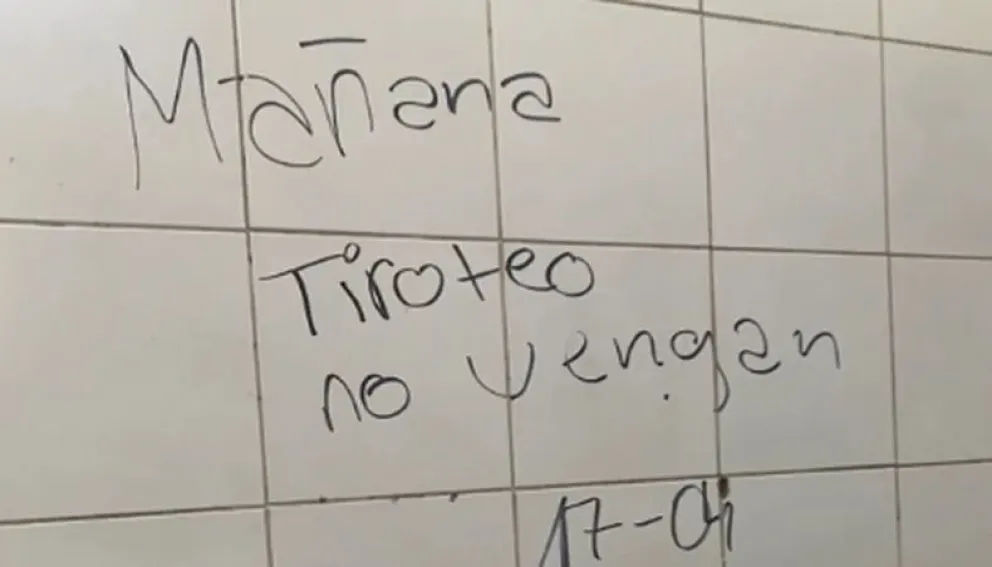 Mañana
Tiroteo
no vengan
17-04